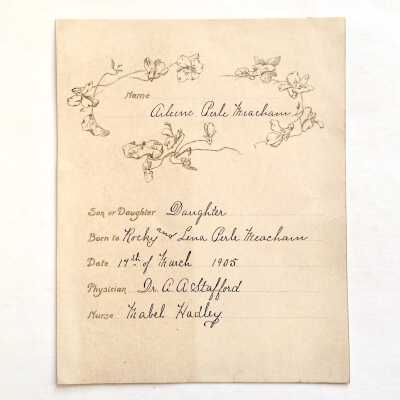 Name
Aileene Perle Meacham
Son or Daughter Daughter
Born to Rocky and Lena Perle Meacham
Date 17th of March 1905
Physician Dr. A A Stafford
Nurse Mabel Hadley